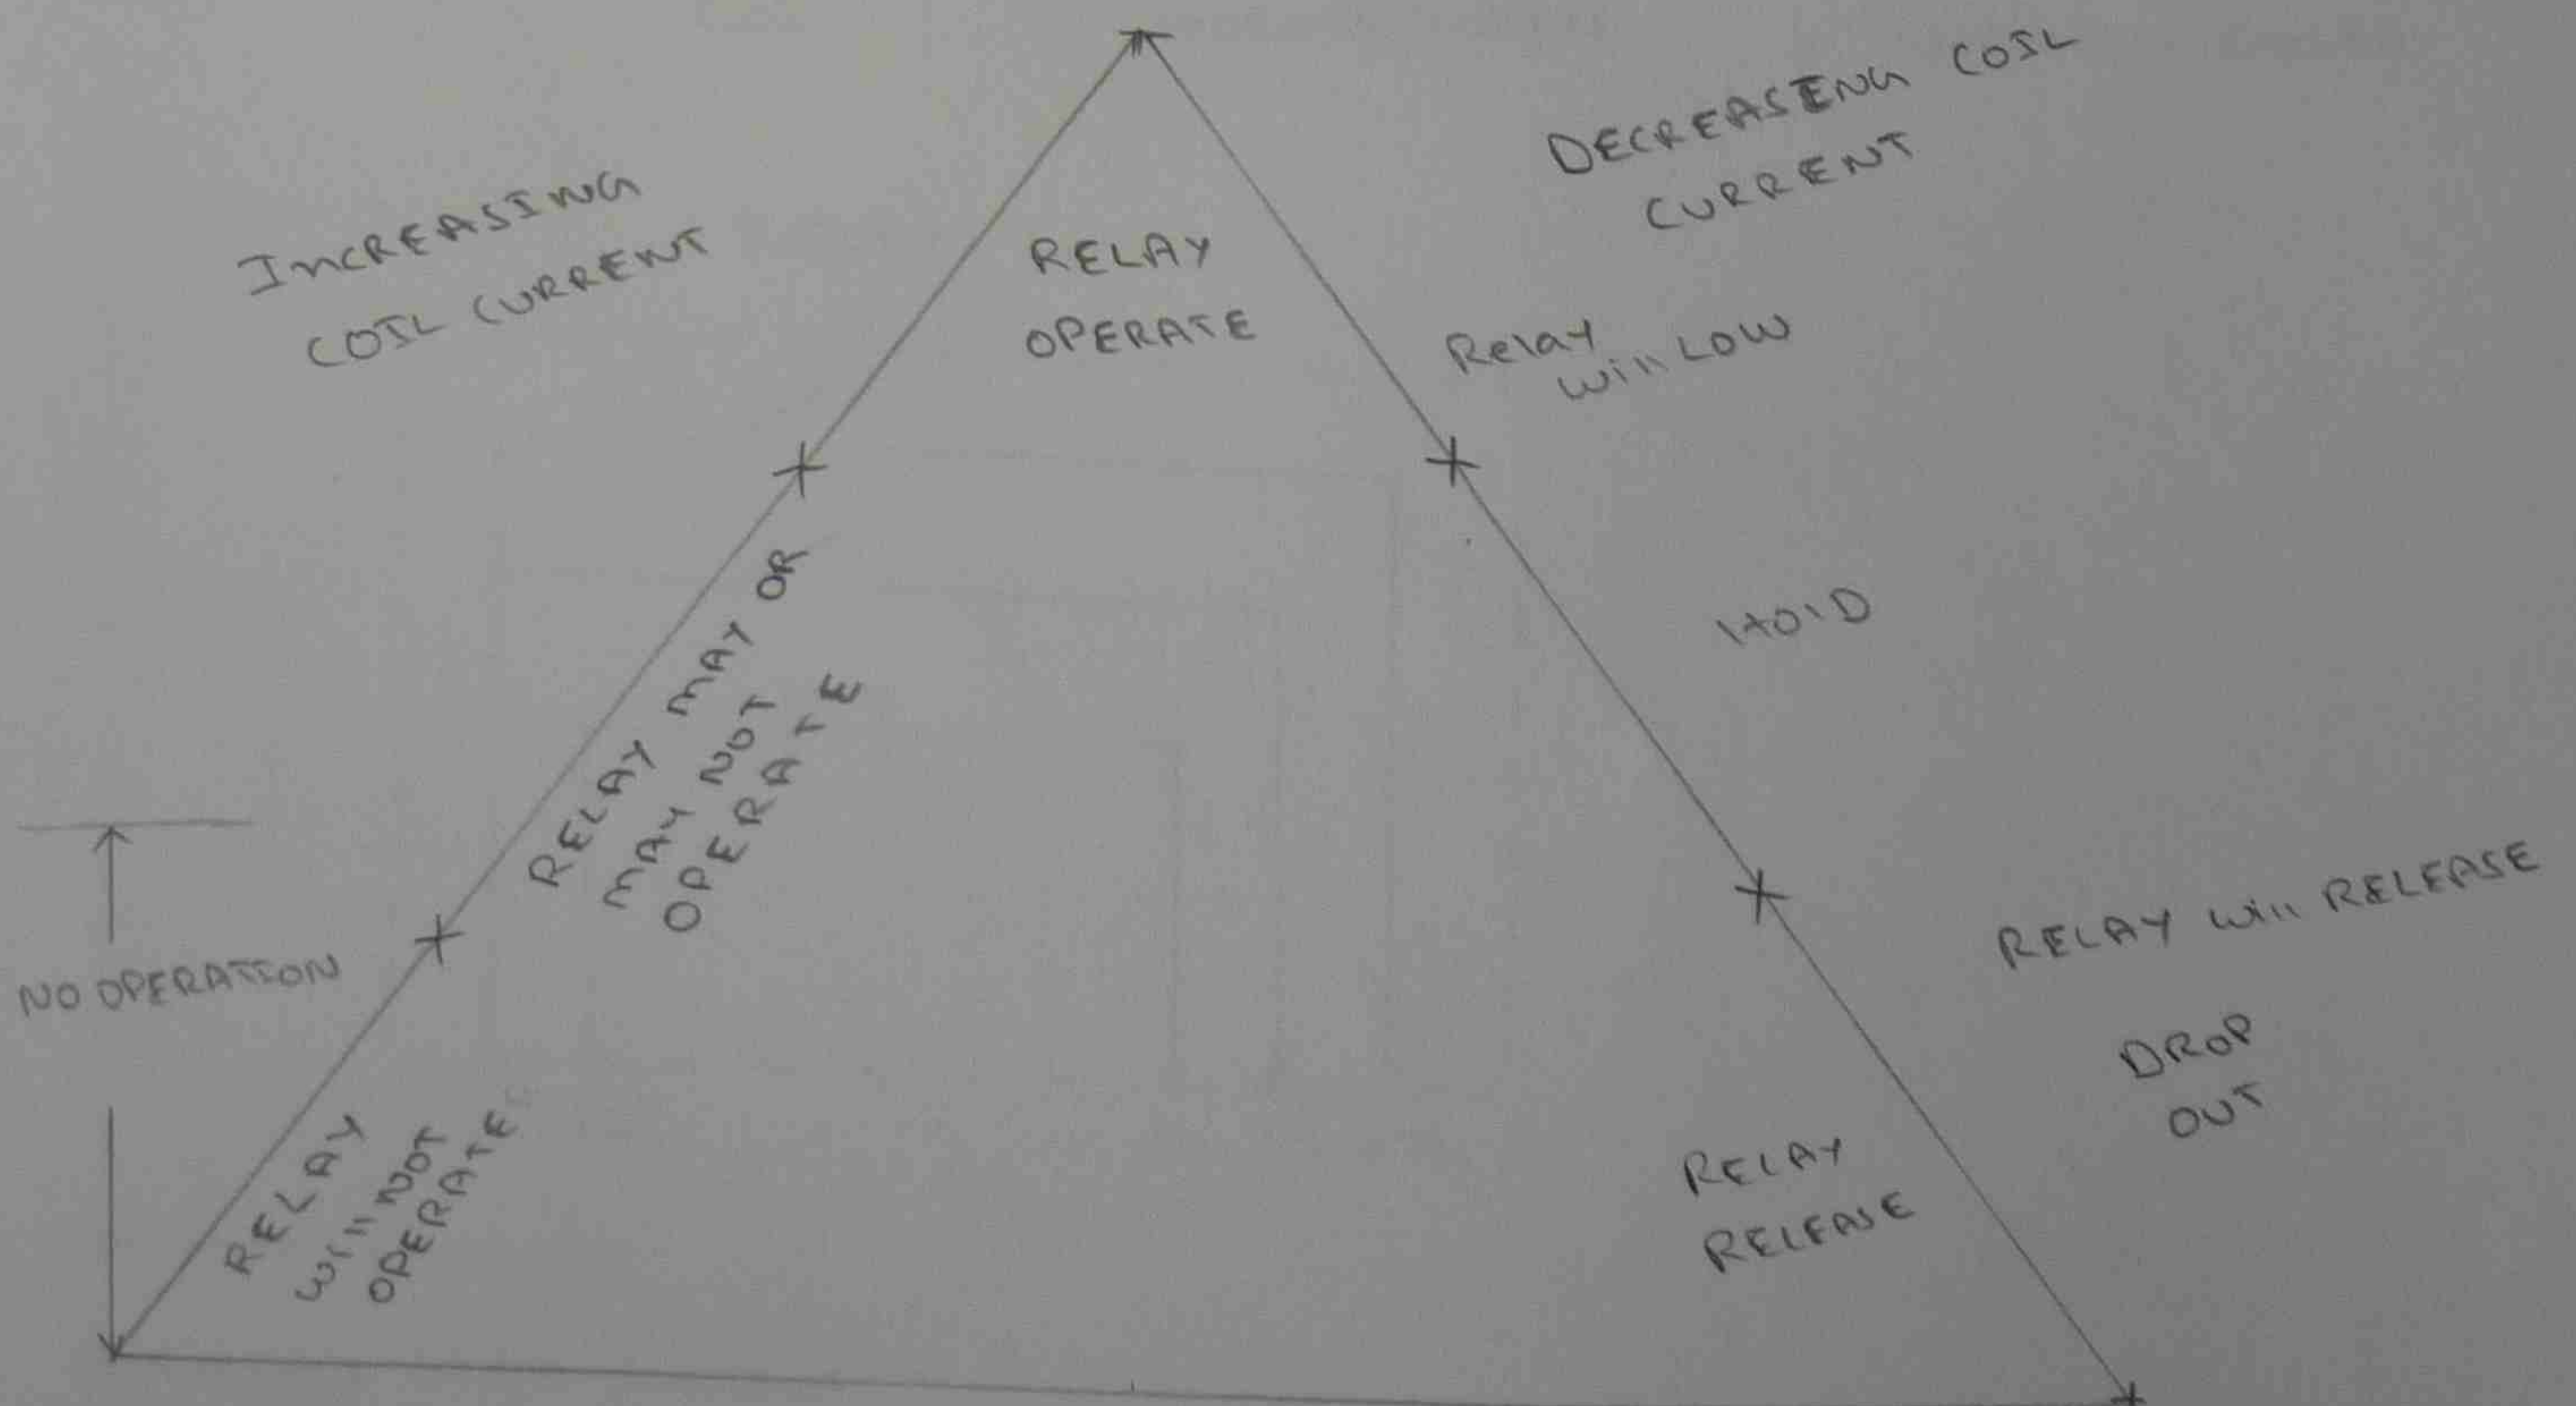 INCREASING
COIL CURRENT
DECREASING COIL
CURRENT
RELAY
OPERATE
Relay
will LOW
RELAY MAY OR
MAY NOT
OPERATE
HOlD
NO OPERATION
RELAY will RELEASE
DROP
OUT
RELAY
will NOT
OPERATE
RELAY
RELEASE